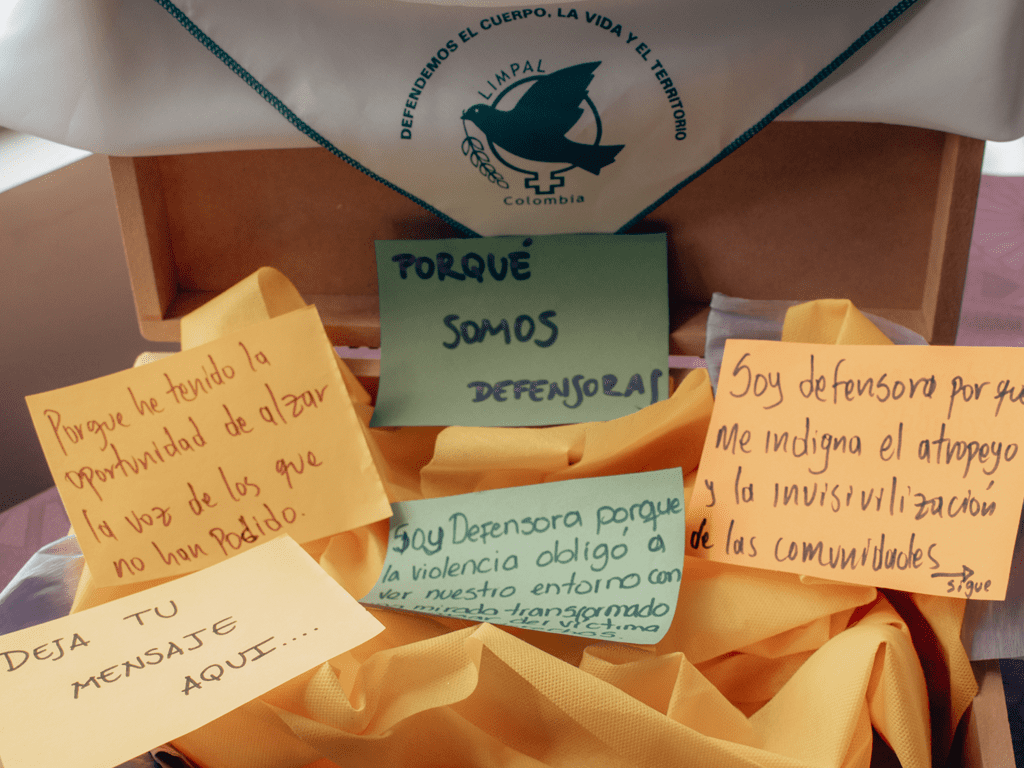 DEFENDEMOS EL CUERPO, LA VIDA Y EL TERRITORIO
LIMPAL
Colombia
PORQUÉ
SOMOS
DEFENSORAS
Porque he tenido la
oportunidad de alzar
la voz de los que
no han Podido.
Soy defensora por que
Me indigna el atropeyo
y la invisivilización
de las comunidades
sigue
Soy Defensora porque
la violencia obligó a
ver nuestro entorno con
mirada transformado
der victima
DEJA TU
MENSAJE
AQUI....